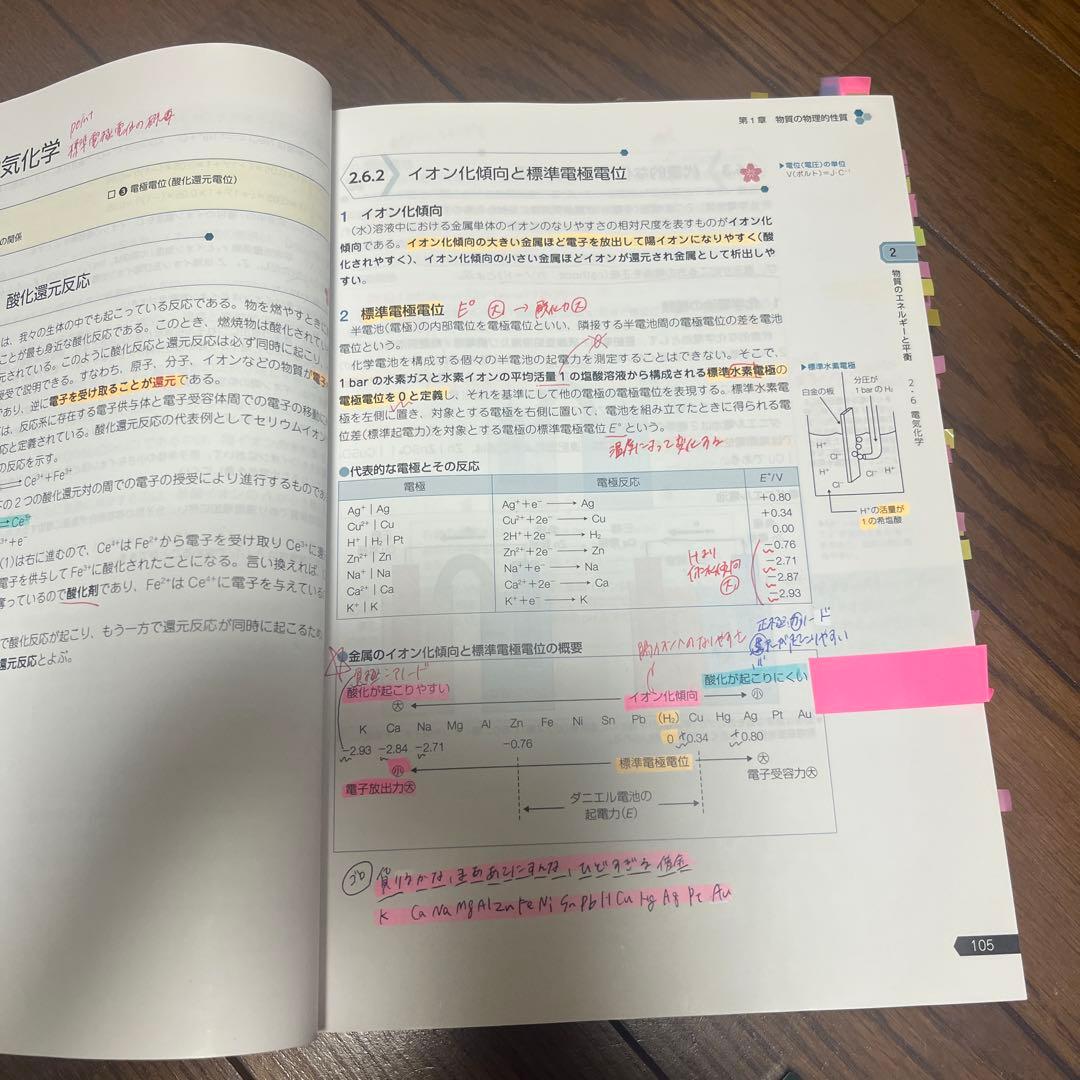 point
標準電極電位の概要
気化学
□ ❸ 電極電位(酸化還元電位)
の関係
酸化還元反応
は、我々の生体の中でも起こっている反応である。物を燃やすときに
ことが最も身近な酸化反応である。このとき、燃焼物は酸化されてい
元されている。このように酸化反応と還元反応は必ず同時に起こり、
授受で説明できる。すなわち、原子、分子、イオンなどの物質が電子
であり、逆に電子を受け取ることが還元である。
は、反応系に存在する電子供与体と電子受容体間での電子の移動に
応と定義されている。酸化還元反応の代表例としてセリウムイオン
の反応を示す。
Ce³⁺+Fe³⁺
下の2つの酸化還元対の間での電子の授受により進行するものであ
⇄ Ce³⁺
³⁺+e⁻
(1)は右に進むので、Ce⁴⁺はFe²⁺から電子を受け取りCe³⁺に還
電子を供与してFe³⁺に酸化されたことになる。言い換えれば、
奪っているので酸化剤であり、Fe²⁺はCe⁴⁺に電子を与えている
で酸化反応が起こり、もう一方で還元反応が同時に起こるため
還元反応とよぶ。
第1章 物質の物理的性質
2.6.2 イオン化傾向と標準電極電位
▶電位(電圧)の単位
V(ボルト)=J・C⁻¹
1 イオン化傾向
(水)溶液中における金属単体のイオンのなりやすさの相対尺度を表すものがイオン化
傾向である。イオン化傾向の大きい金属ほど電子を放出して陽イオンになりやすく(酸
化されやすく)、イオン化傾向の小さい金属ほどイオンが還元され金属として析出しや
すい。
2 標準電極電位 E° 大 → 酸化力大
半電池(電極)の内部電位を電極電位といい、隣接する半電池間の電極電位の差を電池
電位という。
化学電池を構成する個々の半電池の起電力を測定することはできない。そこで、
1 barの水素ガスと水素イオンの平均活量1の塩酸溶液から構成される標準水素電極の
電極電位を0と定義し、それを基準にして他の電極の電極電位を表現する。標準水素電
極を左側に置き、対象とする電極を右側に置いて、電池を組み立てたときに得られる電
位差(標準起電力)を対象とする電極の標準電極電位E°という。
温度によって変化する
●代表的な電極とその反応
電極 電極反応 E°/V
Ag⁺|Ag Ag⁺+e⁻ → Ag +0.80
Cu²⁺|Cu Cu²⁺+2e⁻ → Cu +0.34
H⁺|H₂|Pt 2H⁺+2e⁻ → H₂ 0.00
Zn²⁺|Zn Zn²⁺+2e⁻ → Zn −0.76
Na⁺|Na Na⁺+e⁻ → Na −2.71
Ca²⁺|Ca Ca²⁺+2e⁻ → Ca −2.87
K⁺|K K⁺+e⁻ → K −2.93
Hより
イオン化傾向
大
▶標準水素電極
分圧が
1 barのH₂
白金の板
H⁺
Cl⁻
H⁺
Cl⁻
H⁺
H⁺
Cl⁻
H⁺の活量が
1の希塩酸
2
物質のエネルギーと平衡
2・6 電気化学
●金属のイオン化傾向と標準電極電位の概要
陽イオンへのなりやすさ
正極:カソード
還元が起こりやすい
負極:アノード
酸化が起こりやすい イオン化傾向 酸化が起こりにくい
大 小
K Ca Na Mg Al Zn Fe Ni Sn Pb (H₂) Cu Hg Ag Pt Au
−2.93 −2.84 −2.71 −0.76 0 +0.34 +0.80
小 標準電極電位 大
電子放出力大 電子受容力大
ダニエル電池の
起電力(E)
ゴロ 貸りるかな,まああてにすんな,ひどすぎる借金
K Ca Na Mg Al Zn Fe Ni Sn Pb H Cu Hg Ag Pt Au
105